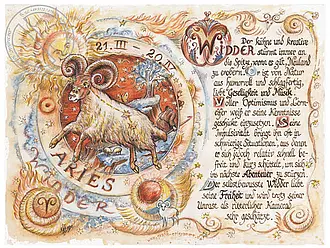 21. III - 20. IV
ARIES
DER
WIDDER
Der kühne und kreative
WIDDER stürmt immer an
die Spitze, wenn es gilt, Neuland
zu erobern. Er ist von Natur
aus humorvoll und schlagfertig,
liebt Geselligkeit und Musik.
Voller Optimismus und Lern-
eifer weiß er seine Kenntnisse
geschickt einzusetzen. Seine
Impulsivität bringt ihn oft in
schwierige Situationen, aus denen
er sich jedoch relativ schnell be-
freit und kurz schüttelt, um sich
ins nächste Abenteuer zu stürzen.
Der selbstbewusste Widder liebt
seine Freiheit und wird trotz seiner
Unrast als ritterlicher Kamerad
sehr geschätzt.